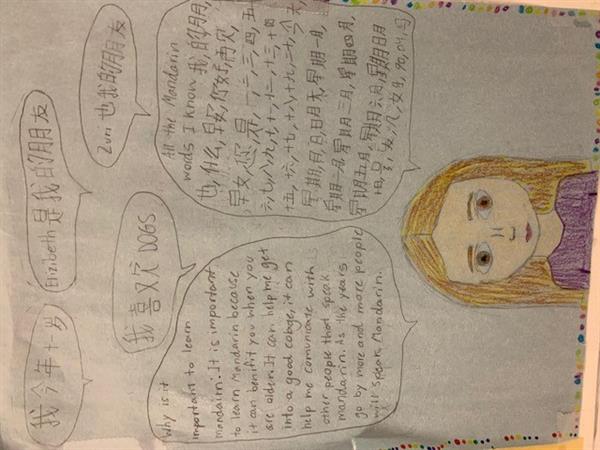 我今年十岁
Elizibeth 是我的朋友
Zuri 也我的朋友
我喜欢 DOGS
All the Mandarin
words I know 我的朋
也,什么,早安,你好,再见,
你,是,一,二,三,四,五
六,七,八,九,十,十一,十二,十三,十四
十五,十六,十七,十八,十九,二十,今天,
星期 天,星期一
星期一 三月,星期四月,
星期五月,星期六月,星期日月
Why is it
important to learn
mandairn? It is important
to learn Mandarin because
it can benifit you when you
are older. It can help me get
into a good colage, it can
help me comunicate with
other people that speak
mandarin. As the years
go by more and more people
will speak Mandarin.